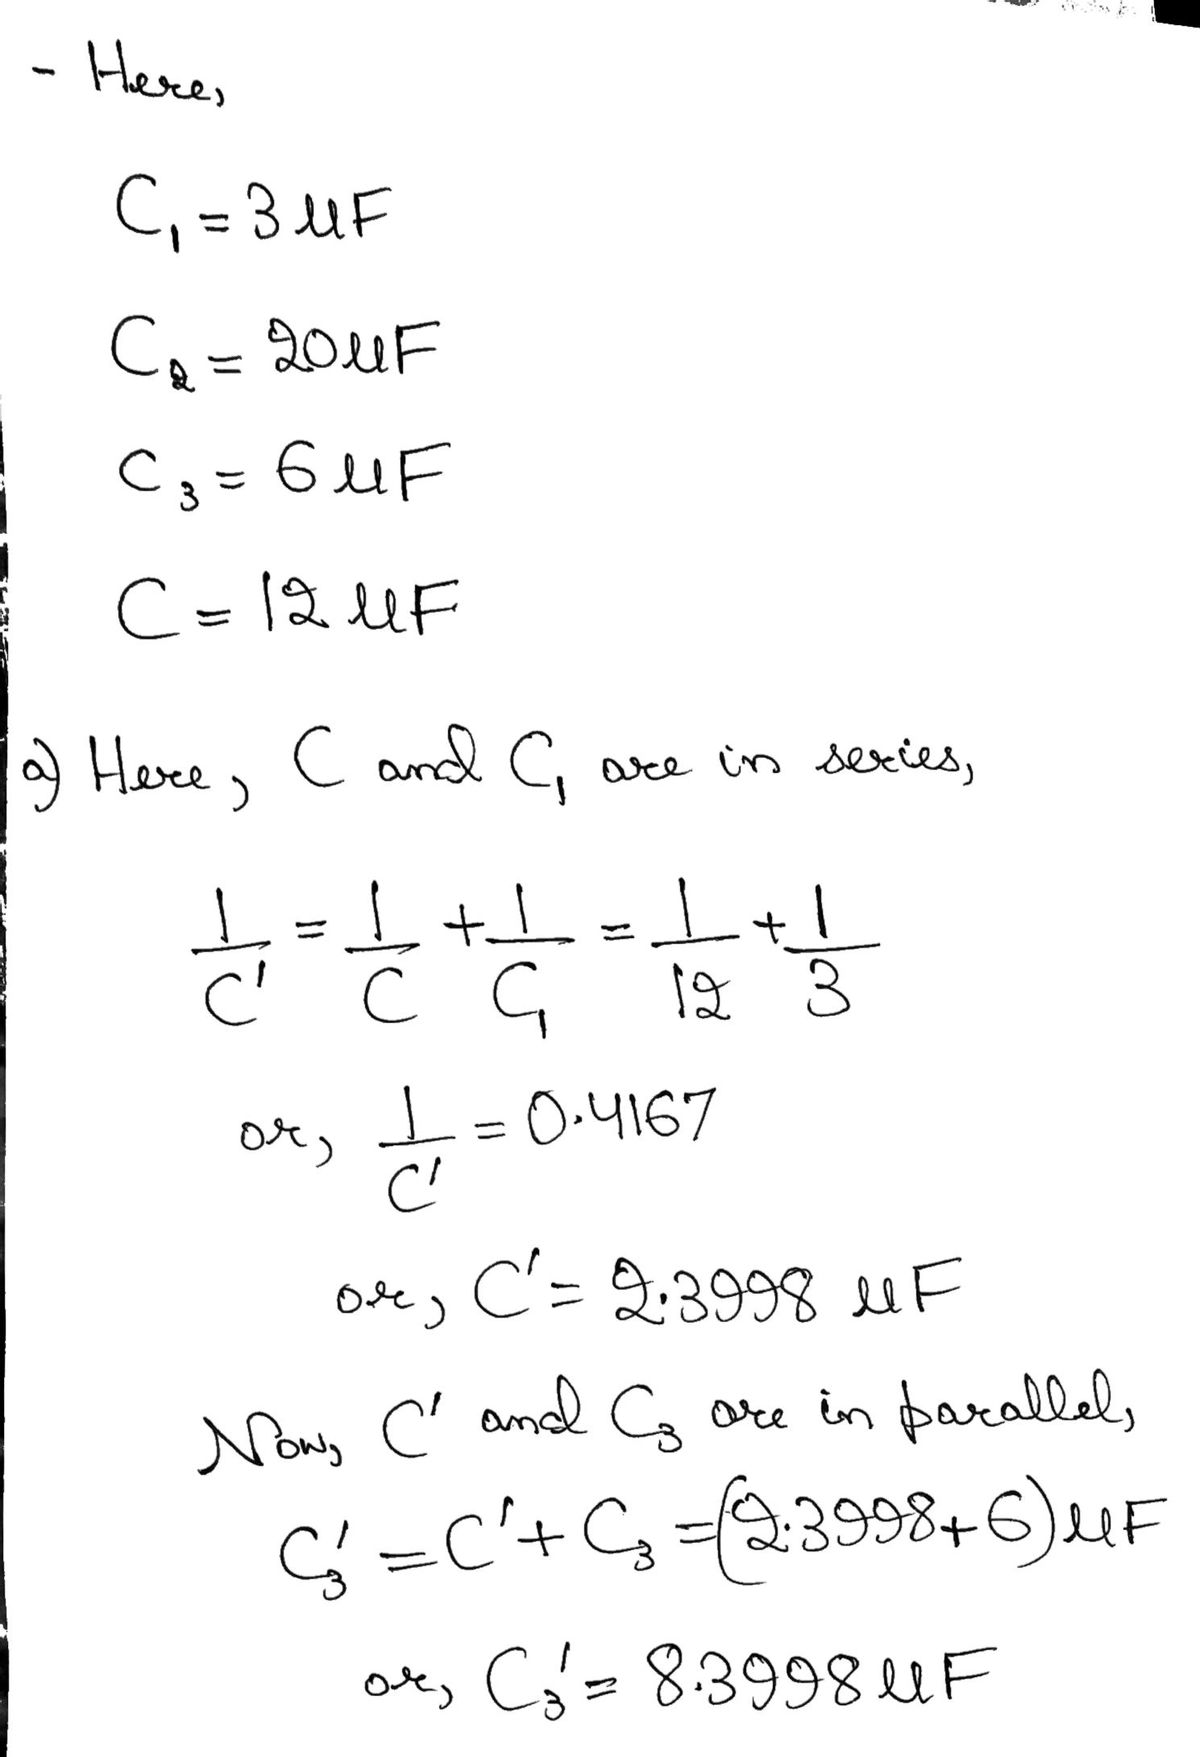 - Here,
C₁ = 3 μF
C₂ = 20 μF
C₃ = 6 μF
C = 12 μF
a) Here, C and C₁ are in series,
1/C' = 1/C + 1/C₁ = 1/12 + 1/3
or, 1/C' = 0.4167
or, C' = 2.3998 μF
Now, C' and C₃ are in parallel,
C₃' = C' + C₃ = (2.3998 + 6) μF
or, C₃' = 8.3998 μF